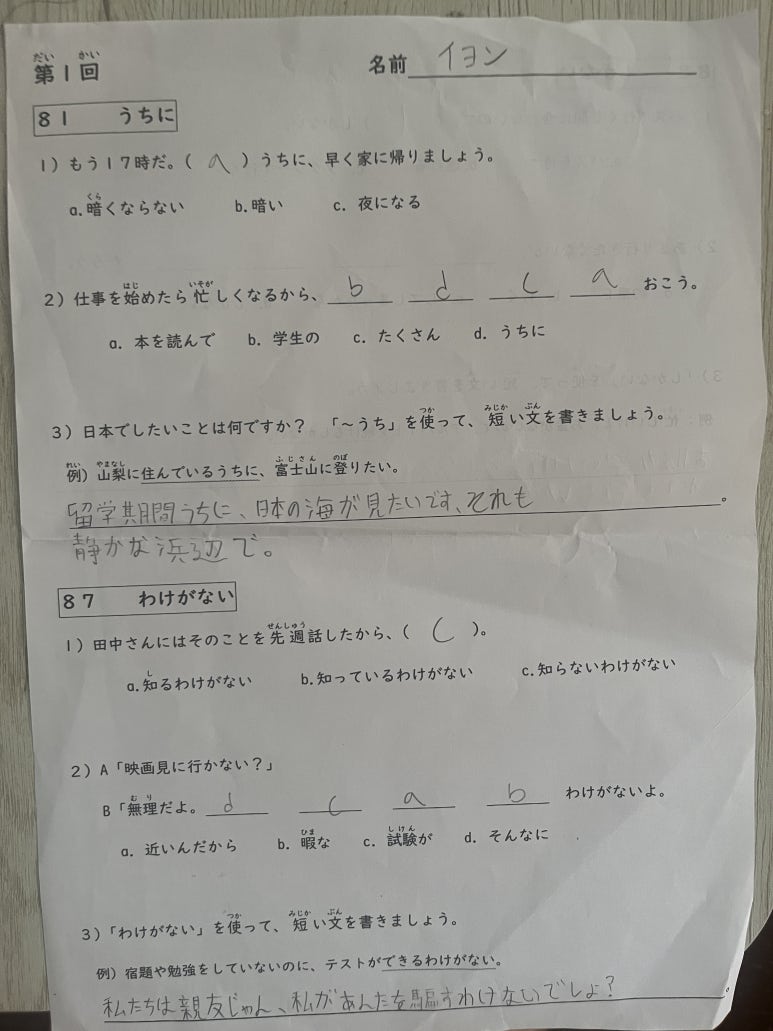 第１回　名前　イヨン
８１　うちに
１）もう１７時だ。（ a ）うちに、早く家に帰りましょう。
a.暗くならない　b.暗い　c. 夜になる
２）仕事を始めたら忙しくなるから、 b d c a おこう。
a. 本を読んで　b. 学生の　c. たくさん　d. うちに
３）日本でしたいことは何ですか？　「～うち」を使って、短い文を書きましょう。
例）山梨に住んでいるうちに、富士山に登りたい。
留学期間うちに、日本の海が見たいです、それも。
静かな浜辺で。
８７　わけがない
１）田中さんにはそのことを先週話したから、（ c ）。
a.知るわけがない　b.知っているわけがない　c.知らないわけがない
２）A「映画見に行かない？」
B「無理だよ。 d c a b わけがないよ。
a. 近いんだから　b. 暇な　c. 試験が　d. そんなに
３）「わけがない」を使って、短い文を書きましょう。
例）宿題や勉強をしていないのに、テストができるわけがない。
私たちは親友じゃん、私があんたを騙すわけないでしょ？。